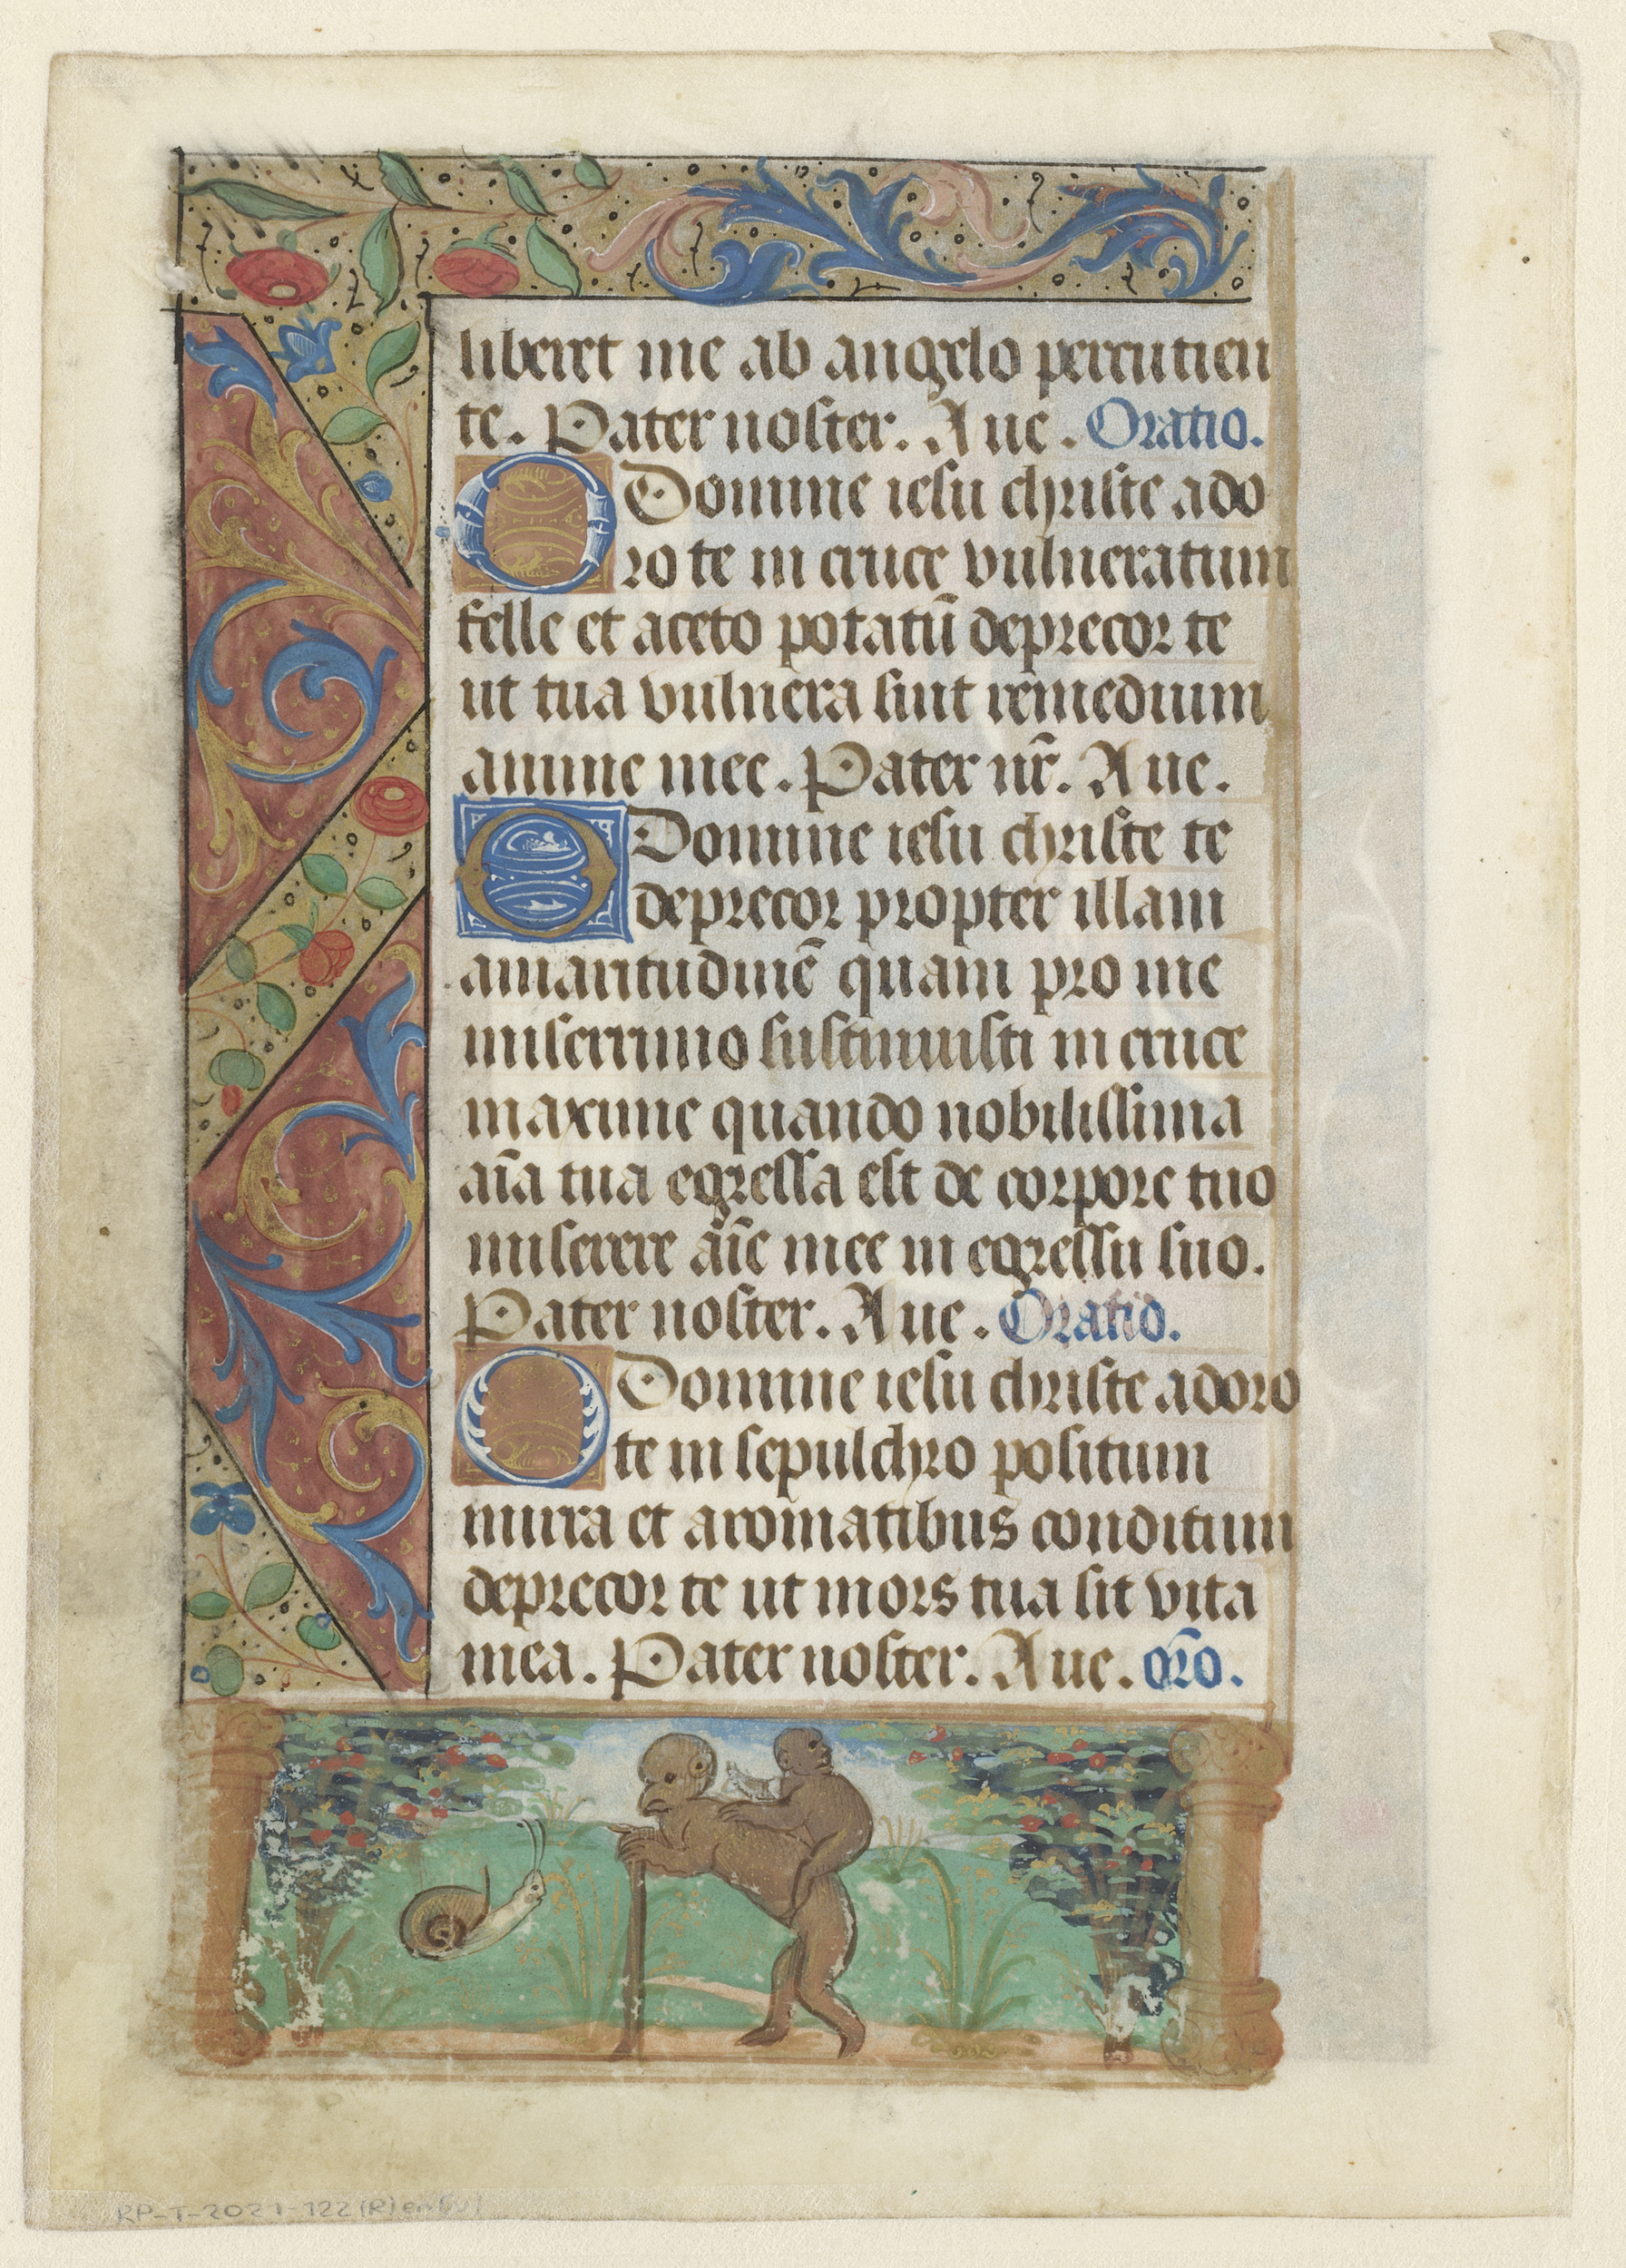 liberet me ab angelo percutien
te. Pater noster. Aue. Oratio.
O Domine iesu christe ado
ro te in cruce vulneratum
felle et aceto potatū deprecor te
ut tua vulnera sint remedium
anime mee. Pater nr̄. Aue.
O Domine iesu christe te
deprecor propter illam
amaritudinē quam pro me
miserrimo sustinuisti in cruce
maxime quando nobilissima
aīa tua egressa est de corpore tuo
miserere aīe mee in egressu suo.
Pater noster. Aue. Oratio.
O Domine iesu christe adoro
te in sepulchro positum
mirra et aromatibus conditum
deprecor te ut mors tua sit vita
mea. Pater noster. Aue. oro.
RP-T-2021-122(R)